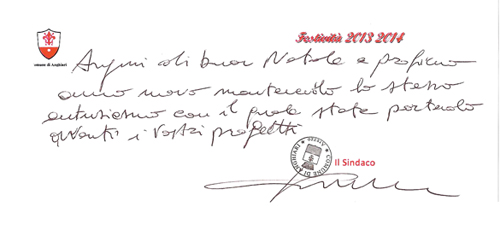 Festività 2013 2014
comune di Anghiari
Auguri di buon Natale e proficuo
anno novo mantenendo lo stesso
entusiasmo con il quale state portando
avanti i vostri progetti
COMUNE DI ANGHIARI
Il Sindaco